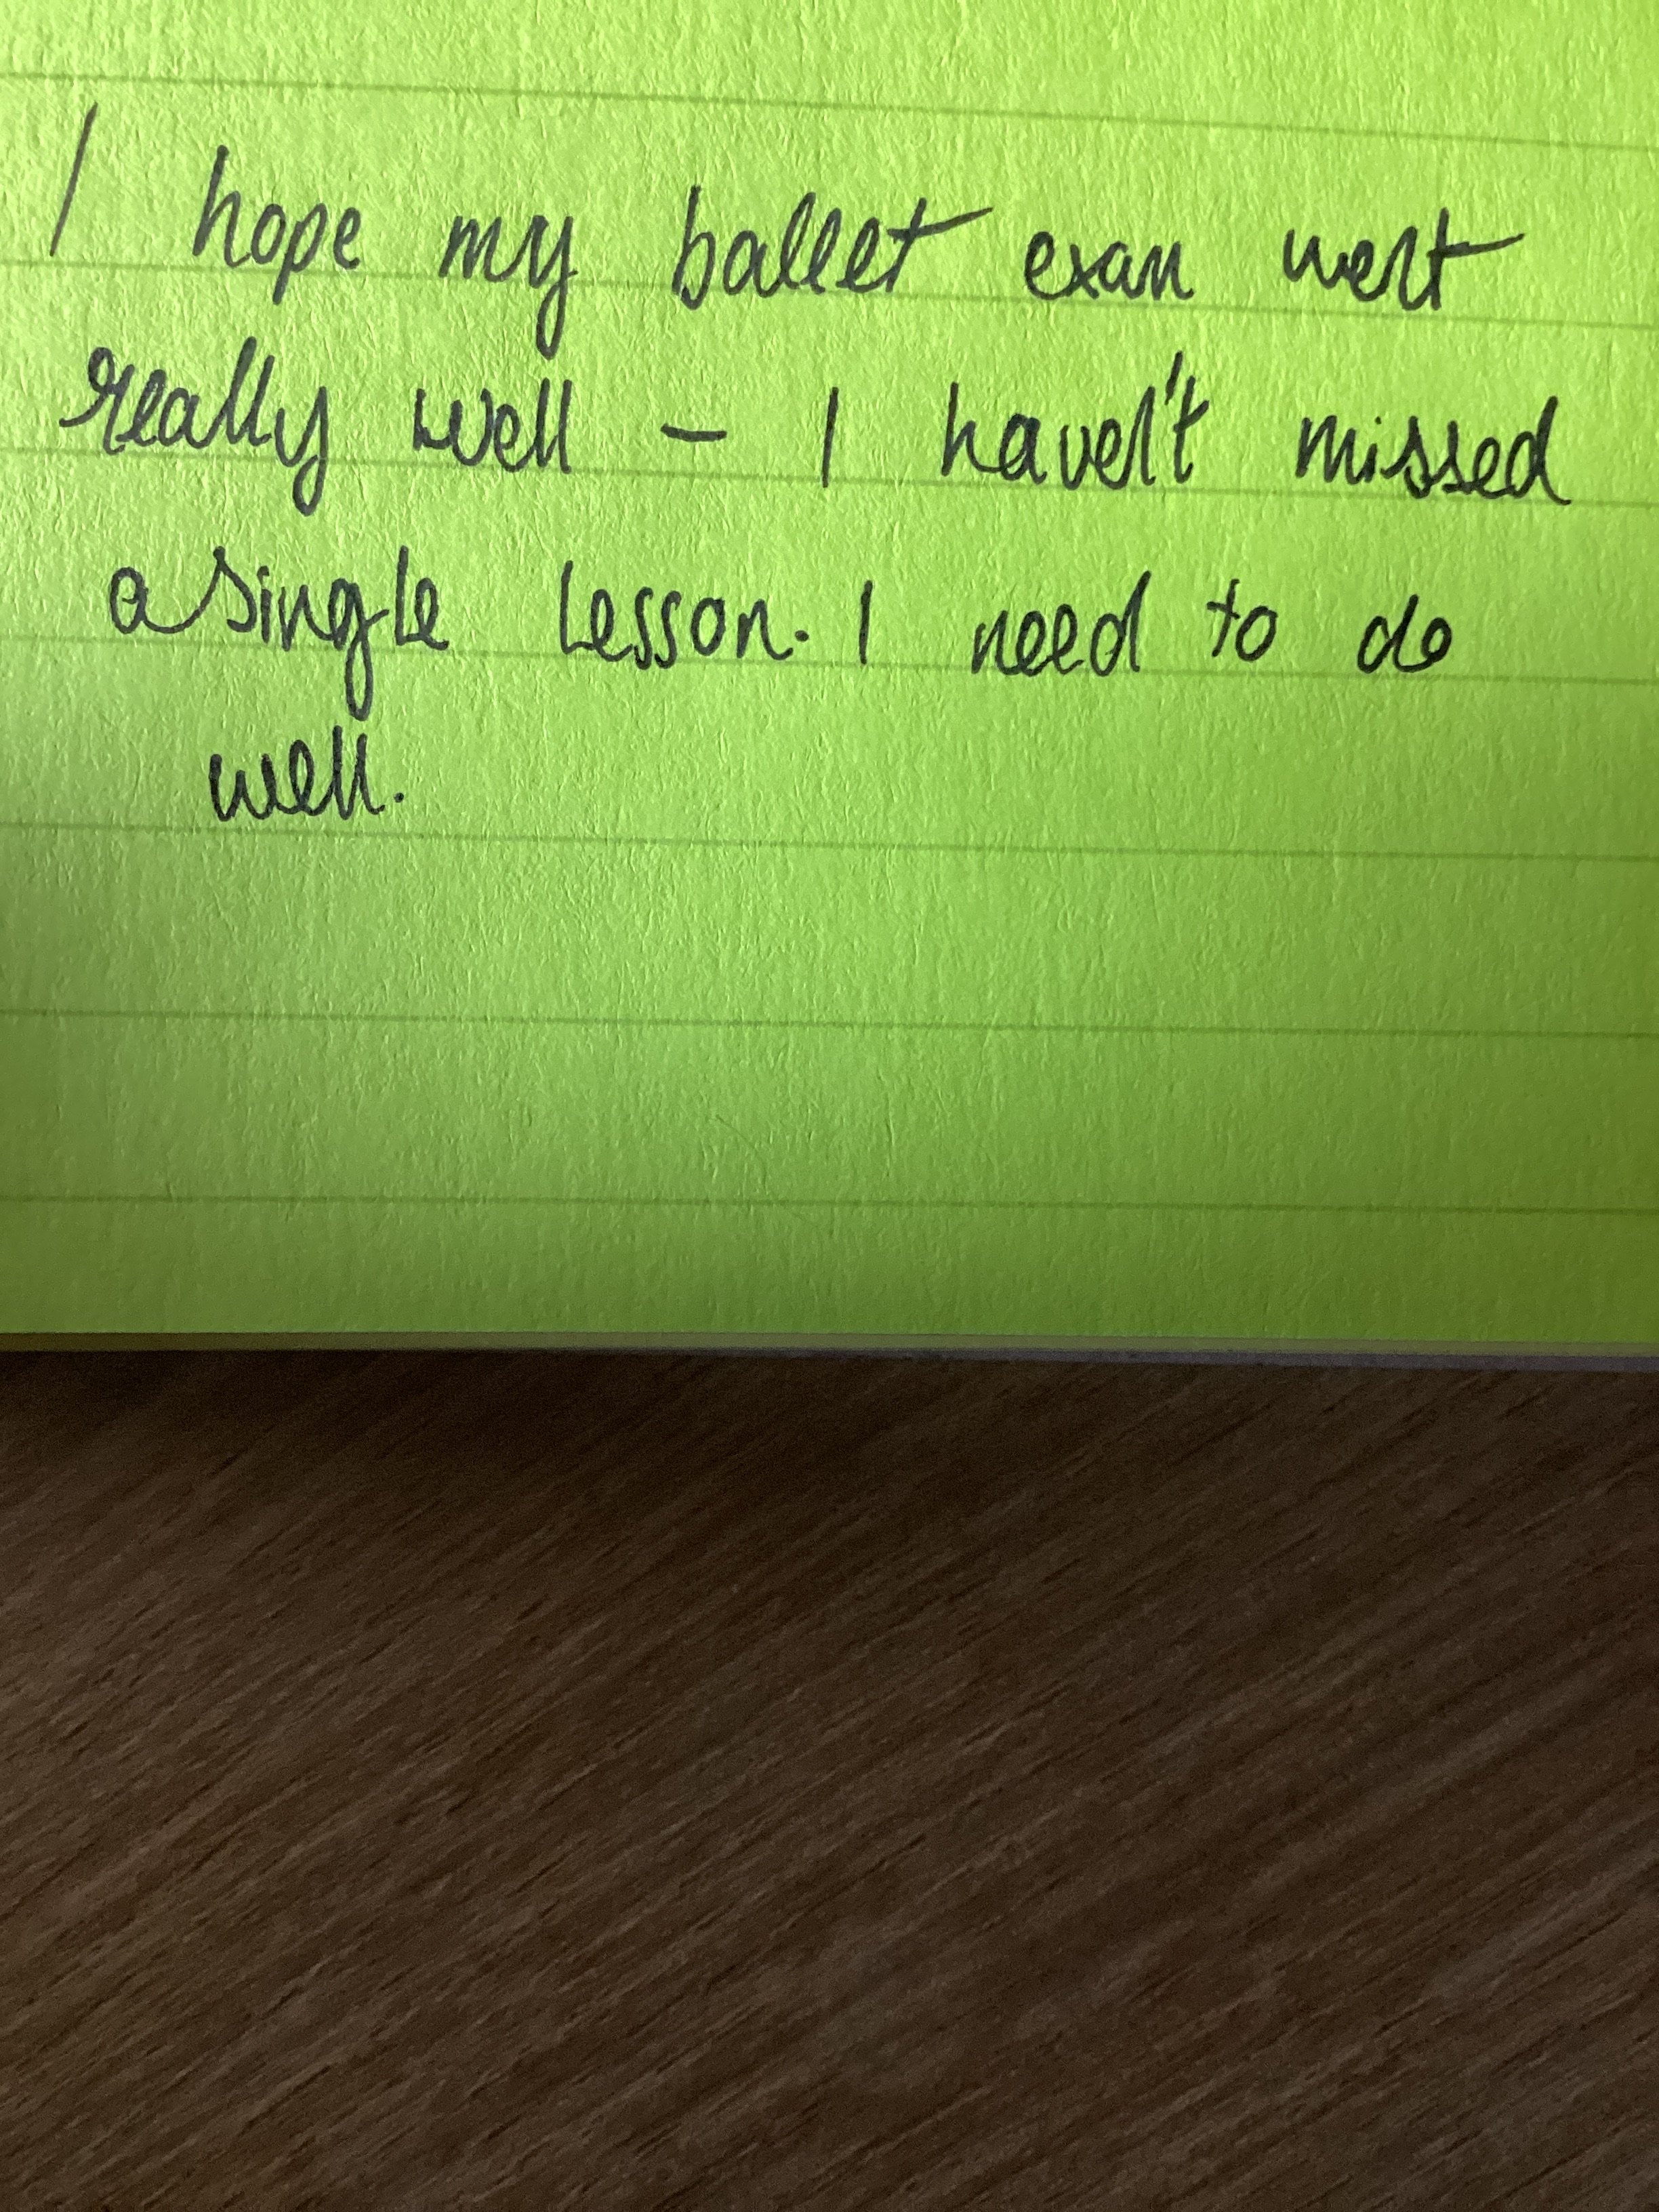 I hope my ballet exam went
really well - I haven't missed
a single lesson. I need to do
well.